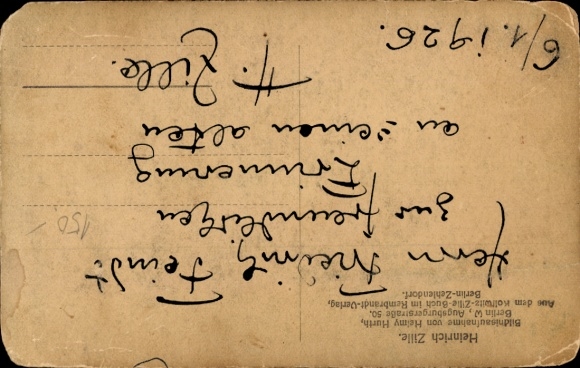 Heinrich Zille.
Bildnisaufnahme von Heimy Hurth,
Berlin W, Augsburgerstraße 50.
Aus dem Kollwitz-Zille-Buch im Rembrandt-Verlag,
Berlin-Zehlendorf.
Herrn
zur freundlichen
Erinnerung
an seinen alten
H. Zille.
6/1. 1926.
150 -